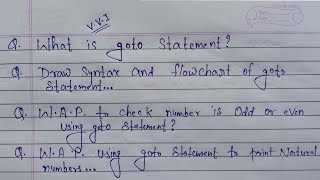 V.V.I
Q. What is goto Statement?
Q. Draw Syntax and flowchart of goto
Statement...
Q. W.A.P. to check number is Odd or even
using goto Statement?
Q. W.A.P. using goto Statement to print Natural
numbers...